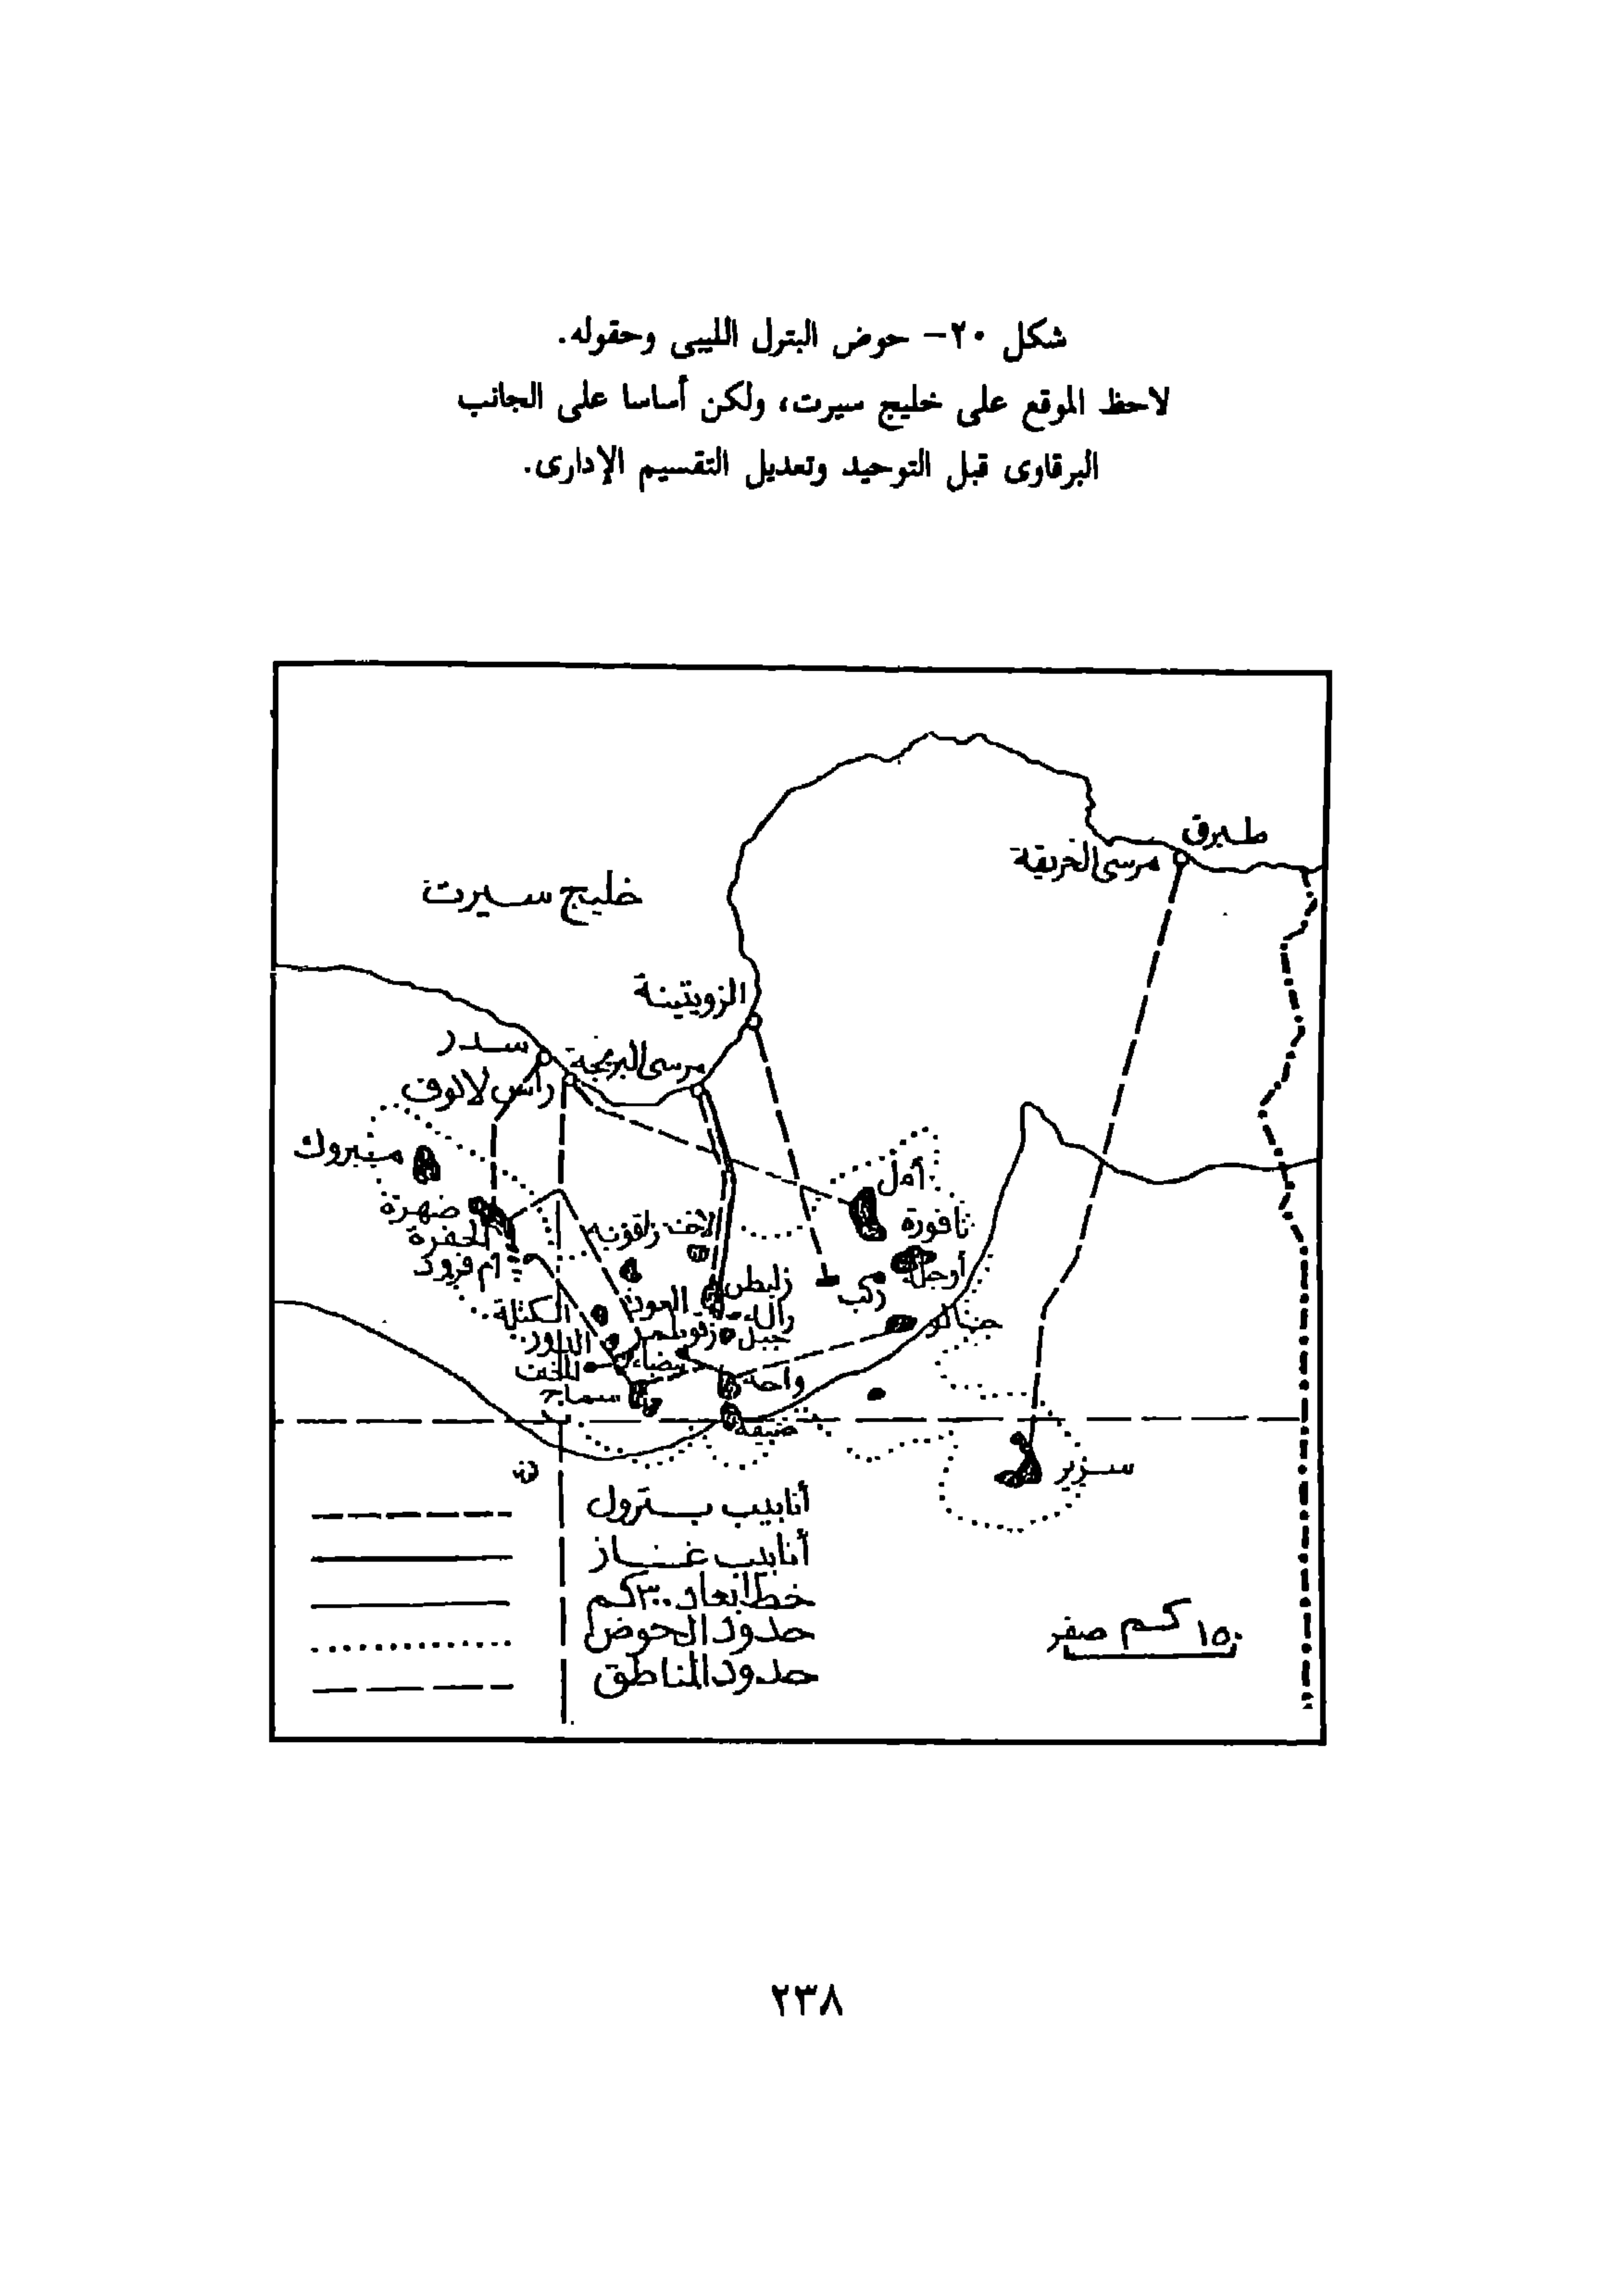 شكل ٢٠- حوض البترل الليبى وحقوله.
لاحظ الموقع على خليج سيرت، ولكن أساسا على الجانب
البرقاوى قبل التوحيد وتعديل التقسيم الإدارى.
طبرق
مرسى الحريقة
خليج سيرت
الزويتينة
سدر
مرسى البريجة
رأس لانوف
مبروك
أمل
ضهرة
نافورة
الحفرة
زقوزيه
أوجله
زلطن
ركب
الكتلة
رالاء
جالو
جبل
الدور
بيضاء
سماح
واحه
ضيفه
سرير
أنابيب بترول
أنابيب غاز
خط أبعاد ٣٠٠ كم
حدود الحوض
حدود المناطق
١٥٠ كم صفر
٢٣٨